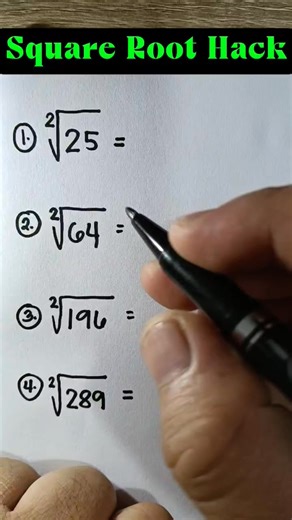 Square Root Hack
1. ²√25 =
2. ²√64 =
3. ²√196 =
4. ²√289 =